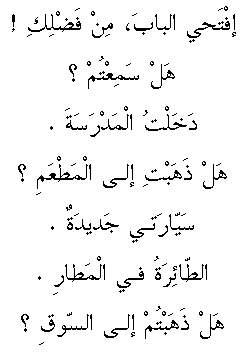 إفْتَحي البابَ، مِنْ فَضْلِكِ !
هَلْ سَمِعْتُمْ ؟
دَخَلْتُ الْمَدْرَسَةَ .
هَلْ ذَهَبْتِ إلى الْمَطْعَمِ ؟
سَيّارَتي جَديدَةٌ .
الطّائِرَةُ في الْمَطارِ .
هَلْ ذَهَبْتُمْ إلى السّوقِ ؟